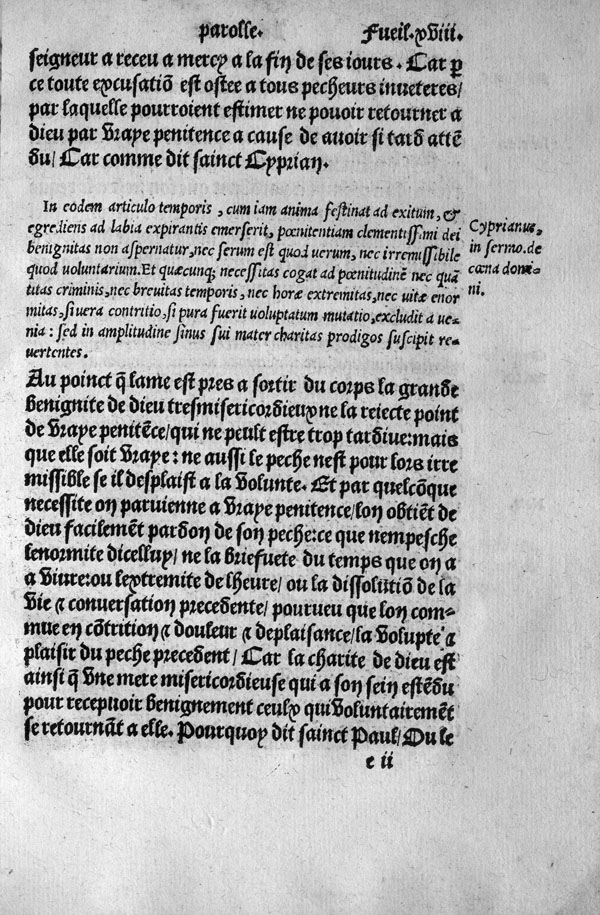 parolle. Fueil. xviii.
seigneur a receu a mercy a la fin de ses iours. Car p̲
ce toute excusatiō est ostee a tous pecheurs inueteres/
par laquelle pourroient estimer ne pouoir retourner a
dieu par vraye penitence a cause de auoir si tard attē
du/ Car comme dit sainct Cyprian.
In eodem articulo temporis, cum iam anima festinat ad exitum, &
egrediens ad labia expirantis emerserit, pœnitentiam clementissimi dei
benignitas non aspernatur, nec serum est quod uerum, nec irremissibile
quod uoluntarium. Et quæcunq; necessitas cogat ad pœnitudinē nec quā
titas criminis, nec breuitas temporis, nec horæ extremitas, nec uitæ enor
mitas, si uera contritio, si pura fuerit uoluptatum mutatio, excludit a ue-
nia: sed in amplitudine sinus sui mater charitas prodigos suscipit re-
uertentes.
Cyprianus,
in sermo. de
cœna domi-
ni.
Au poinct q̄ lame est pres a sortir du corps la grande
benignite de dieu tresmisericordieux ne la reiecte point
de vraye penitēce/ qui ne peult estre trop tardiue: mais
que elle soit vraye: ne aussi le peche nest pour lors irre
missible se il desplaist a la volunte. Et par quelcōque
necessite on paruienne a vraye penitence/ lon obtiēt de
dieu facilemēt pardon de son peche: ce que nempesche
lenormite dicelluy/ ne la briefuete du temps que on a
a viure: ou lextremite de lheure/ ou la dissolutiō de la
vie & conuersation precedente/ pourueu que lon com-
mue en cōtrition & douleur & deplaisance/ la volupte &
plaisir du peche precedent/ Car la charite de dieu est
ainsi q̄ vne mere misericordieuse qui a son sein estēdu
pour recepuoir benignement ceulx qui voluntairemēt
se retournāt a elle. Pourquoy dit sainct Paul/ Ou le
e ii